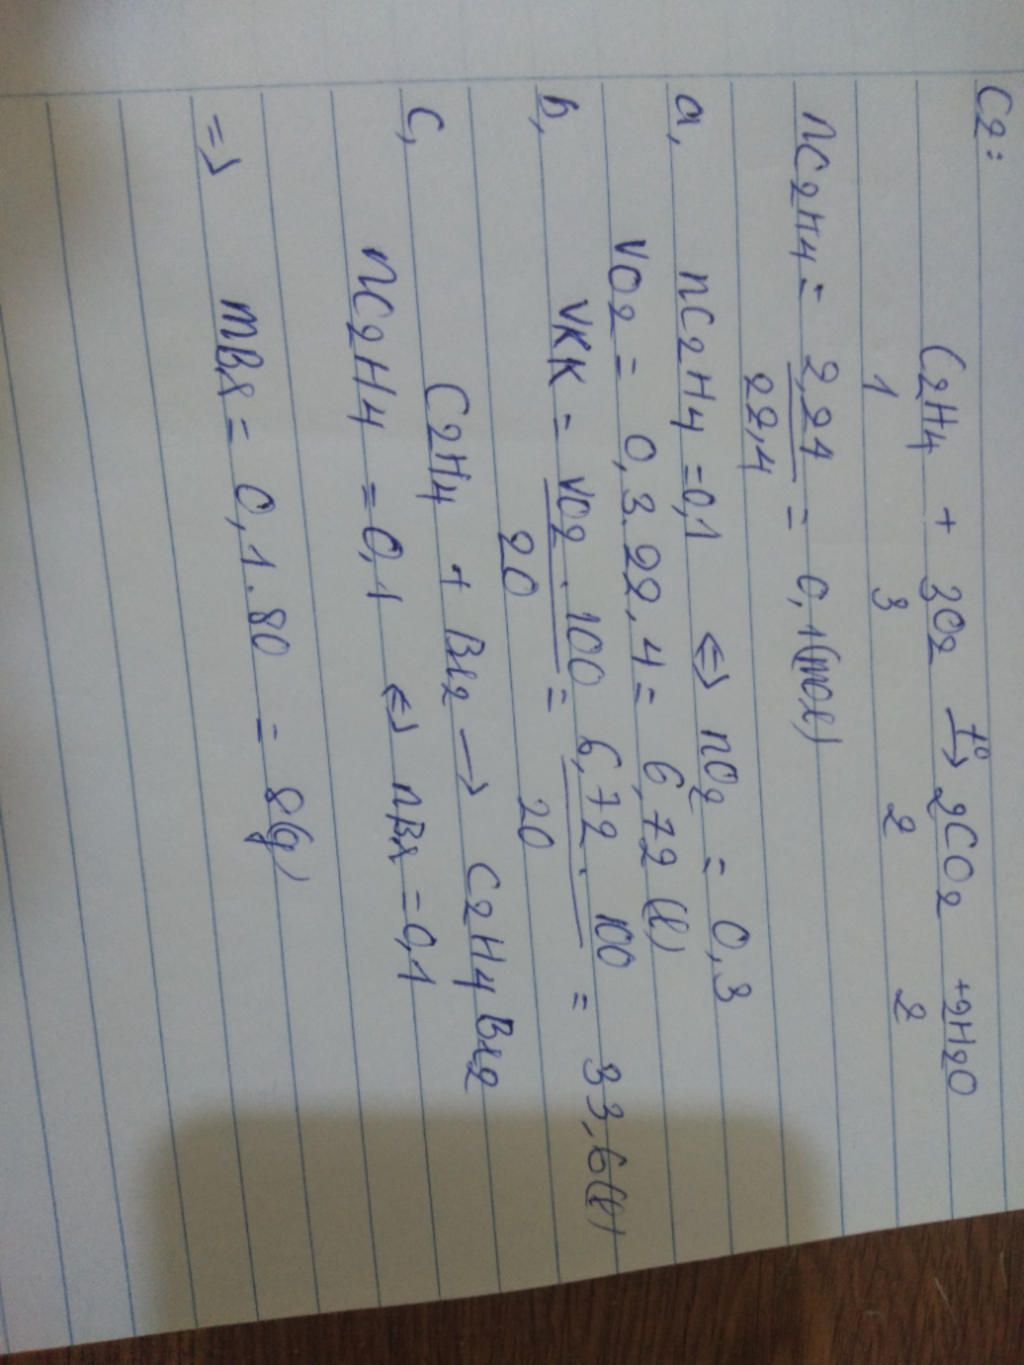 C2:
C2H4 + 3O2 t°→ 2CO2 +2H2O
1 3 2 2
nC2H4 = 2,24 = 0,1(mol)
22,4
a, nC2H4 = 0,1 <=> nO2 = 0,3
VO2 = 0,3.22,4 = 6,72 (l)
b, VKK = VO2.100 = 6,72.100 = 33,6(l)
20 20
c, C2H4 + Br2 → C2H4Br2
nC2H4 = 0,1 <=> nBr = 0,1
=> mBr = 0,1.80 = 8(g)